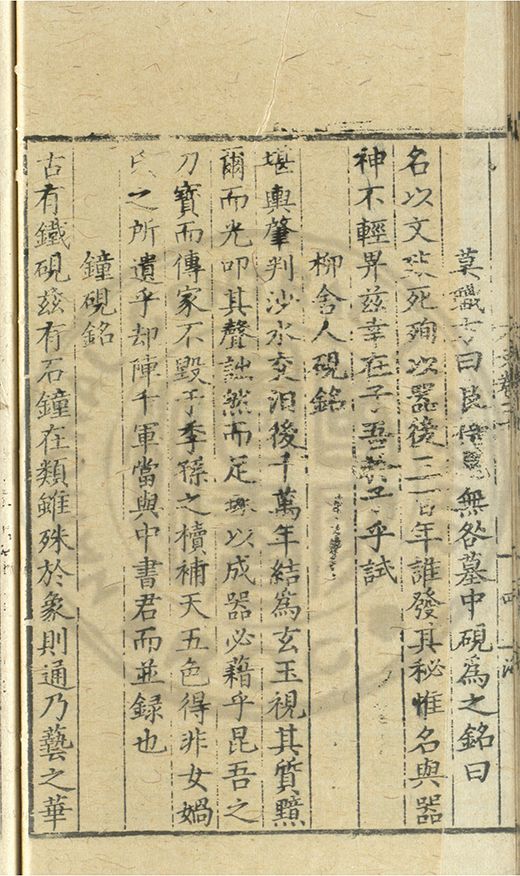 莫 曰 無咎墓中硯爲之銘曰
名以文 死殉以器後 百年誰發其秘惟名與器
神不輕畀茲幸在子吾 子乎試
柳舍人硯銘
堪輿肇判沙水交汨後千萬年結爲玄玉視其質黯
爾而光叩其聲詘然而足 以成器必藉乎昆吾之
刀寶而傳家不毀于季孫之櫝補天五色得非女媧
氏之所遺乎却陣千軍當與中書君而並録也
鐘硯銘
古有鐵硯茲有石鐘在類雖殊於象則通乃藝之華